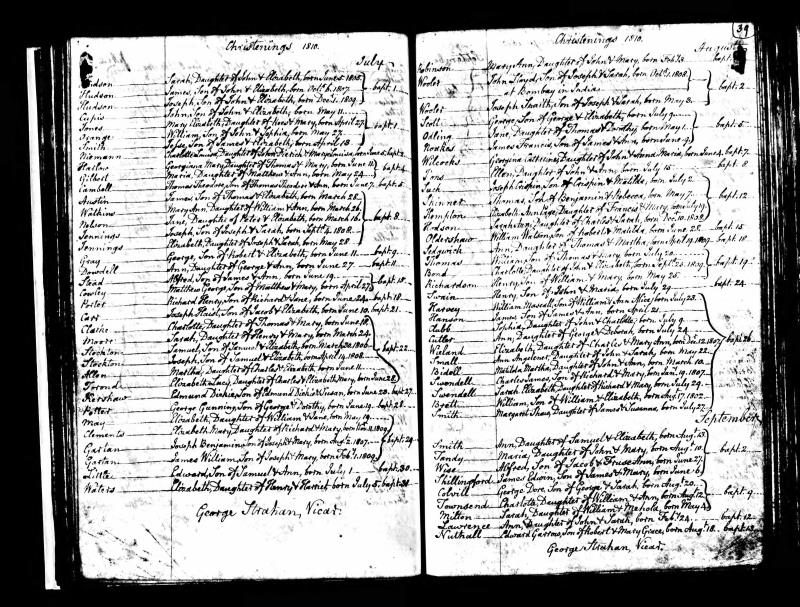 Christenings 1810.
July
Hudson Sarah, Daughter of John & Elizabeth, born June 5. 1805.
Hudson James, Son of John & Elizabeth, born Octr. 6. 1807 bapt. 1
Hudson Joseph, Son of John & Elizabeth, born Decr. 1. 1809.
John, Son of John & Elizabeth, born May 11.
Jones Mary Elizabeth, Daughter of & Mary, born April 27. bapt. 1
Orange William, Son of John & Sophia, born May 27.
Smith Jesse, Son of James & Elizabeth, born April 13.
Niemann Charlotte Louisa, Daughter of John Dietrich & Mary Louisa, born June 5. bapt. 3
Georgina Mary, Daughter of Thomas & Mary, born June 11. bapt. 4
Gilbert Maria, Daughter of Matthew & Ann, born May 24.
Thomas Theodore, Son of Thomas Theodore & Ann, born June 7. bapt. 5.
Austin James, Son of Thomas & Elizabeth, born March 28.
Watkins Mary Ann, Daughter of William & Ann, born March 26.
Nelson Jane, Daughter of Peter & Elizabeth, born March 16. bapt. 8
Jennings Joseph, Son of Joseph & Sarah, born Septr. 4. 1808.
Jennings Elizabeth, Daughter of Joseph & Sarah, born May 28
Gray George, Son of Robert & Elizabeth, born June 11. bapt. 9.
Dowdell Ann, Daughter of George & Ann, born June 27. bapt. 11.
Stead Alfred, Son of James & Ann, born June 19. bapt. 15
Cowley Matthew George, Son of Matthew & Mary, born April 27.
Porter Richard Henry, Son of Richard & Jane, born June 24. bapt. 18
Carr Joseph, Son of Jacob & Elizabeth, born June 30. bapt. 21.
Clarke Charlotte, Daughter of Thomas & Mary, born June 18.
Moore Sarah, Daughter of Henry & Mary, born March 24.
Stockton Samuel, Son of Samuel & Elizabeth, born March 30. 1806 bapt. 22
Stockton Joseph, Son of Samuel & Elizabeth, born April 14. 1808.
Allen Martha, Daughter of Charles & Elizabeth, born June 11.
Elizabeth Lucy, Daughter of Charles & Elizabeth Mary, born June 28.
Kershaw Edmund Dickie, Son of Edmund Dickie & Susan, born June 23. bapt. 27
Potter George Gunning, Son of George & Dorothy, born June 19. bapt. 28
May Elizabeth, Daughter of William & Jane, born May 9
Clements Elizabeth Mary, Daughter of Richard & Mary, born 1809
Garlan Joseph Benjamin, Son of Joseph & Mary, born Augt. 2. 1807. bapt. 29
Garlan James William, Son of Joseph & Mary, born Feby. 1. 1809
Little Edward, Son of Samuel & Ann, born July 1. bapt. 30.
Waters Elizabeth, Daughter of Henry & Harriet, born July 5. bapt. 31
George Strahan, Vicar.
39
Christenings 1810.
August
Robinson Mary Ann, Daughter of John & Mary, born Feby. 3 bapt.
Wooler John Lloyd, Son of Joseph & Sarah, born Octr. 1. 1808
at Bombay in India bapt. 2
Wooler Joseph Smith, Son of Joseph & Sarah, born May 3.
Scott George, Son of George & Elizabeth, born July 9
Odling Jane, Daughter of Thomas & Dorothy, born May 1. bapt. 5
Noakes James Francis, Son of James & Ann, born June 9
Wilcocks Georgina Catherine, Daughter of John & Anna Maria, born June 14. bapt. 7.
Sims Ellen, Daughter of John & Ann, born July 15. bapt. 8
Joseph Crispin, Son of Crispin & Matilda, born July 2
Skinner Thomas, Son of Benjamin & Rebecca, born May 7. bapt. 12
Kempton Elizabeth Ann, Daughter of Thomas & Mary, born July 19.
Hodson Sarah, Daughter of Charles & Sarah, born Decr. 10. 1802.
Oldershaw William Williamson, Son of Robert & Matilda, born June 28. bapt. 15
Sedgwick Ann, Daughter of Thomas & Martha, born April 19. 1809. bapt. 18
Thomas William, Son of Thomas & Mary, born July 20
Bond Charlotte, Daughter of John & Elizabeth, born April 23. bapt. 19.
Richardson Henry, Son of William & Mary, born May 25.
Swain Henry, Son of John & Maria, born July 29 bapt. 24.
Harvey William Mascall, Son of William & Ann Alice, born July 23.
Hanson James, Son of James & Ann, born April 21.
Chubb Sophia, Daughter of John & Charlotte, born July 9
Culler Ann, Daughter of George & Deborah, born July 24.
Wieland Elizabeth, Daughter of Charles & Mary Ann, born Decr. 12. 1807 bapt. 26
Small Ann Angelina, Daughter of John & Sarah, born May 22.
Bidell Matilda Martha, Daughter of John & Ann, born March 1.
Swendell Charles James, Son of Richard & Mary, born Jany. 19. 1807.
Swendell Sarah Elizabeth, Daughter of Richard & Mary, born July 29.
Bratt William, Son of William & Elizabeth, born Augt. 17. 1802.
Smith Margaret Shaw, Daughter of James & Susanna, born July 27.
September
Smith Ann, Daughter of Samuel & Elizabeth, born Augt. 13.
Sandy Maria, Daughter of John & Mary, born Augt. 10. bapt. 2
Wise Alfred, Son of Jacob & , born June 27.
Shillingford James Edwin, Son of James & Mercy, born June 16.
Colvill George Dore, Son of George & Sarah, born Augt. 20.
Townsend Charlotte, Daughter of William & Ann, born Augt. 12 bapt. 9
Milton Sarah, Daughter of William & Mehala, born May 4.
Lawrence Ann, Daughter of John & Sarah, born Feby. 24. bapt. 12
Nuthall Edward Garson, Son of Robert & Mary Grace, born Augt. 18. bapt. 13
George Strahan, Vicar